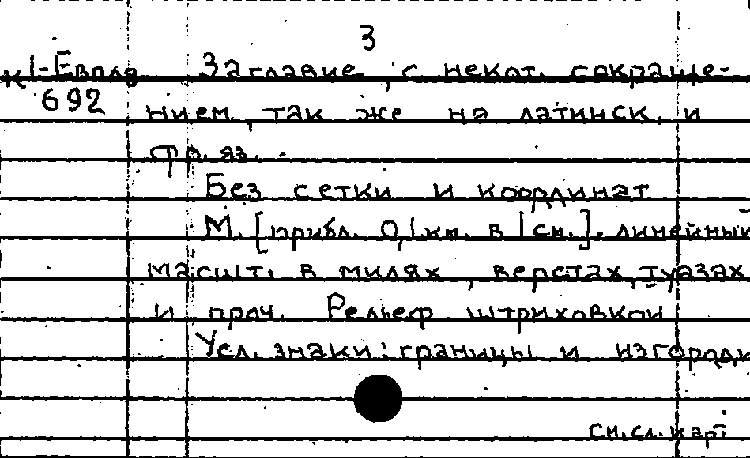 3
К1-Европа Заглавие, с некот. сокраще-
692 нием, так же на латинск. и
фр. яз.
Без сетки и координат
М. [прибл. 0,1 км. в 1 см.]. линейный
масшт. в милях, верстах, туазах
и проч. Рельеф штриховкой
Усл. знаки: границы и изгороди
см. сл. карт